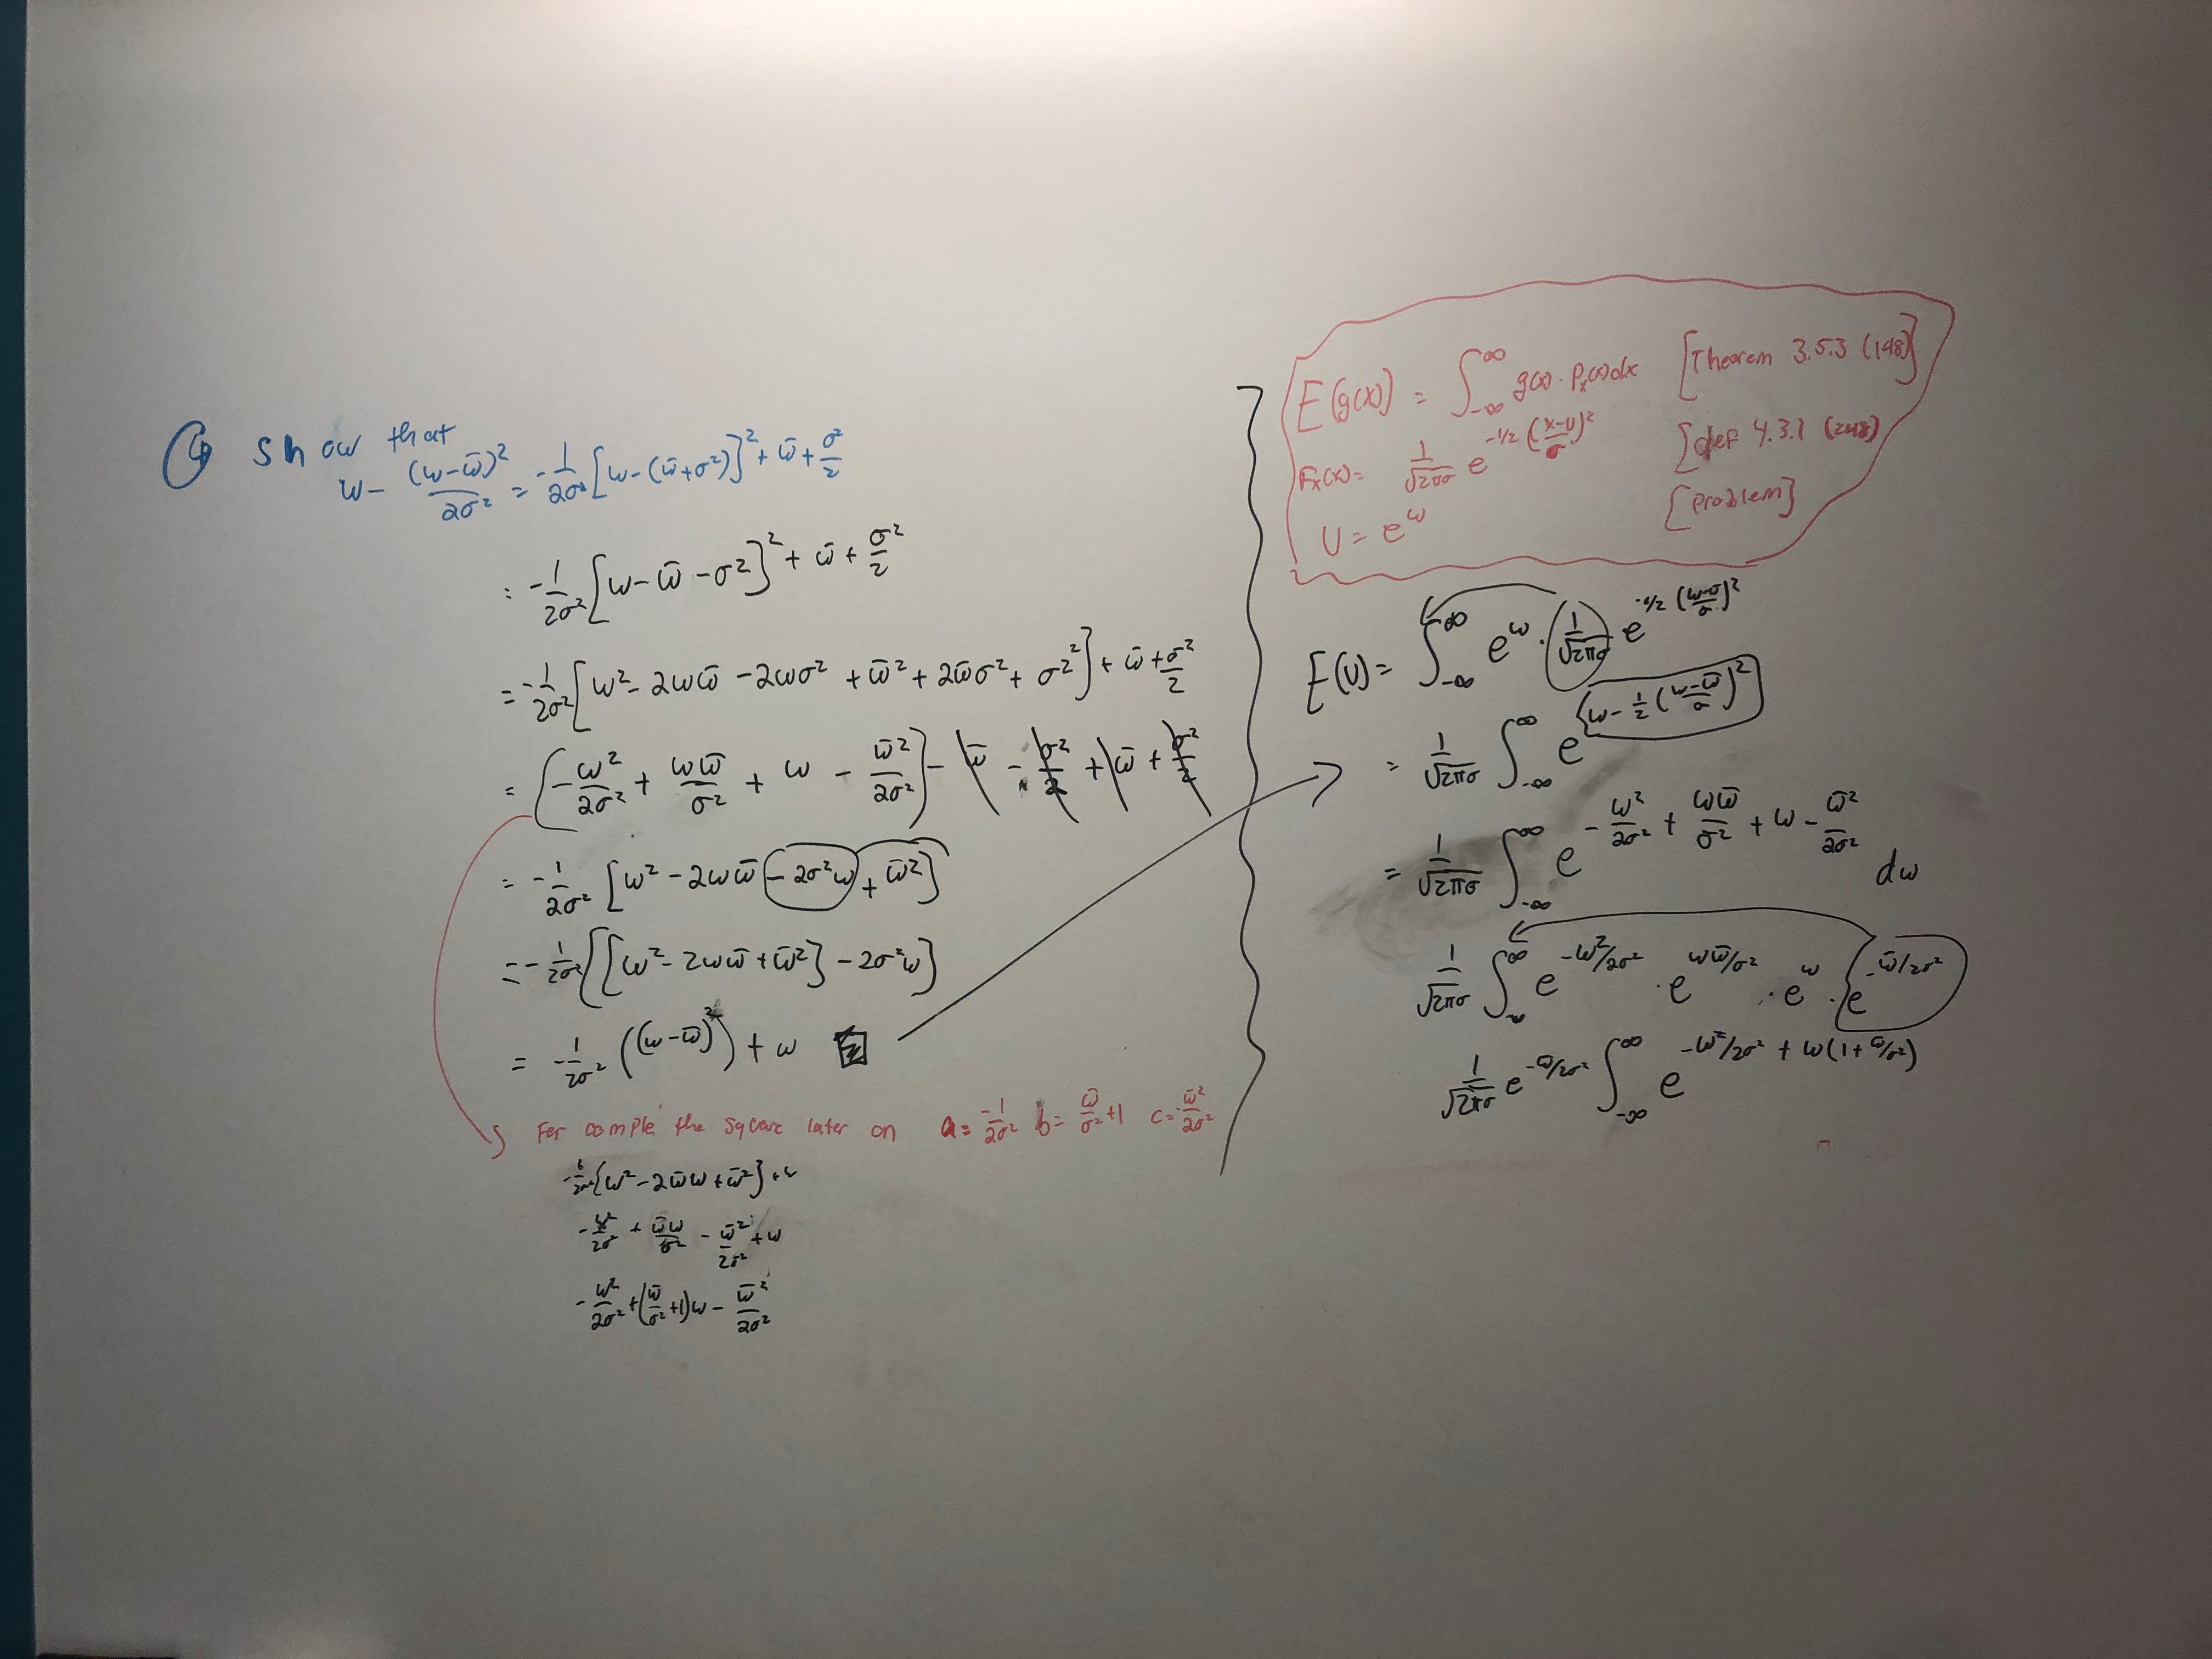 ④ Show that
w - (w-w̄)²/2σ² = -1/2σ² [w-(w̄+σ²)]² + w̄ + σ²/2
= -1/2σ² [w - w̄ - σ²]² + w̄ + σ²/2
= -1/2σ² [w² - 2ww̄ - 2wσ² + w̄² + 2w̄σ² + σ²²] + w̄ + σ²/2
= (-w²/2σ² + ww̄/σ² + w - w̄²/2σ²) - w̄ - σ²/2 + w̄ + σ²/2
= -1/2σ² [w² - 2ww̄ - 2σ²w + w̄²]
= -1/2σ² ([w² - 2ww̄ + w̄²] - 2σ²w)
= -1/2σ² ((w-w̄)²) + w
For comple the square later on a = -1/2σ² b = w̄/σ²+1 c = -w̄²/2σ²
-1/2σ² [w² - 2w̄w + w̄²] + w
-w²/2σ² + w̄w/σ² - w̄²/2σ² + w
-w²/2σ² + (w̄/σ²+1)w - w̄²/2σ²
E(g(x)) = ∫_-∞^∞ g(x)·Pₓ(x)dx [Theorem 3.5.3 (148)]
Fₓ(x) = 1/√2πσ e^(-1/2 ((x-u)/σ)²) [def 4.3.1 (248)]
U = e^w [problem]
E(U) = ∫_-∞^∞ e^w · 1/√2πσ e^(-1/2 ((w-w̄)/σ)²)
= 1/√2πσ ∫_-∞^∞ e^(w - 1/2 ((w-w̄)/σ)²)
= 1/√2πσ ∫_-∞^∞ e^(-w²/2σ² + ww̄/σ² + w - w̄²/2σ²) dw
1/√2πσ ∫_-∞^∞ e^(-w²/2σ²) · e^(ww̄/σ²) · e^w · e^(-w̄/2σ²)
1/√2πσ e^(-w̄/2σ²) ∫_-∞^∞ e^(-w²/2σ² + w(1+w̄/σ²))